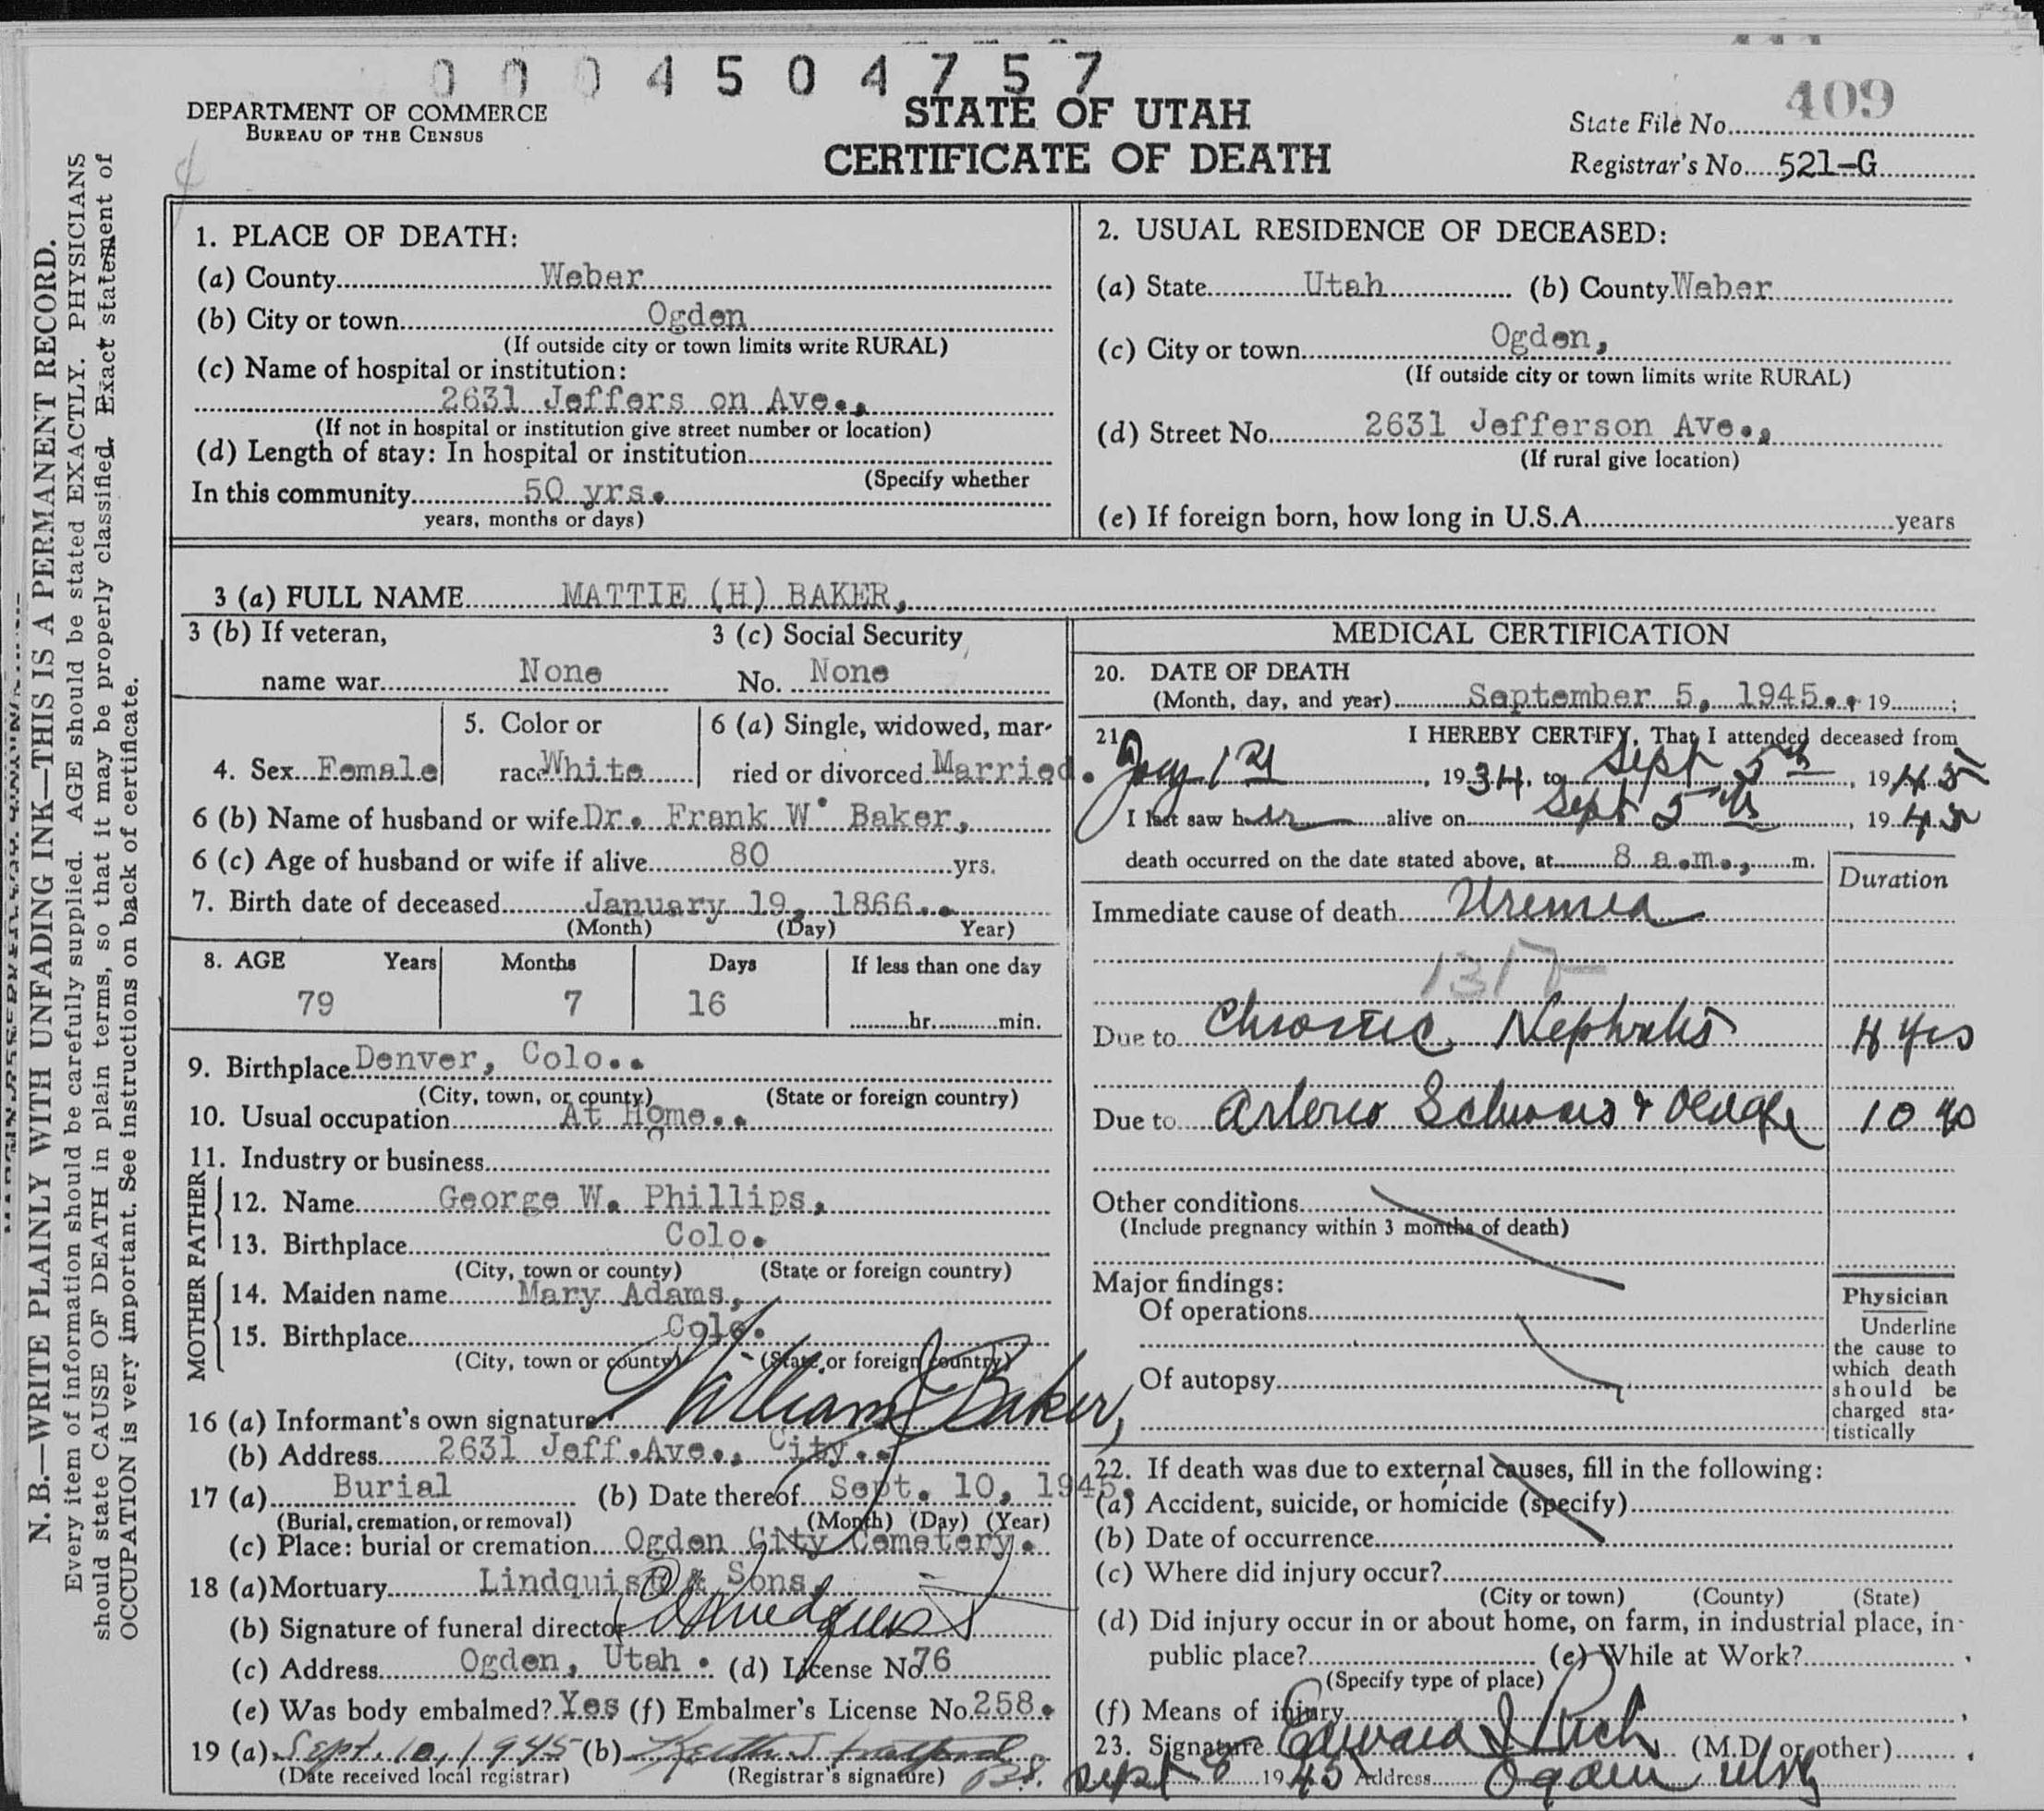 0 0 0 4 5 0 4 7 5 7
DEPARTMENT OF COMMERCE
BUREAU OF THE CENSUS
STATE OF UTAH
CERTIFICATE OF DEATH
State File No. 409
Registrar's No. 521-G
N. B.—WRITE PLAINLY WITH UNFADING INK—THIS IS A PERMANENT RECORD.
Every item of information should be carefully supplied. AGE should be stated EXACTLY. PHYSICIANS
should state CAUSE OF DEATH in plain terms, so that it may be properly classified. Exact statement of
OCCUPATION is very important. See instructions on back of certificate.
1. PLACE OF DEATH:
(a) County Weber
(b) City or town Ogden
(If outside city or town limits write RURAL)
(c) Name of hospital or institution:
2631 Jeffers on Ave.,
(If not in hospital or institution give street number or location)
(d) Length of stay: In hospital or institution
(Specify whether
In this community 50 yrs.
years, months or days)
2. USUAL RESIDENCE OF DECEASED:
(a) State Utah (b) County Weber
(c) City or town Ogden,
(If outside city or town limits write RURAL)
(d) Street No. 2631 Jefferson Ave.,
(If rural give location)
(e) If foreign born, how long in U.S.A. years
3 (a) FULL NAME MATTIE (H) BAKER,
3 (b) If veteran,
name war None
3 (c) Social Security
No. None
4. Sex Female
5. Color or
race White
6 (a) Single, widowed, mar-
ried or divorced Married.
6 (b) Name of husband or wife Dr. Frank W. Baker,
6 (c) Age of husband or wife if alive 80 yrs.
7. Birth date of deceased January 19, 1866..
(Month) (Day) Year)
8. AGE Years Months Days If less than one day
79 7 16 hr. min.
9. Birthplace Denver, Colo..
(City, town, or county) (State or foreign country)
10. Usual occupation At Home..
11. Industry or business
FATHER
12. Name George W. Phillips,
13. Birthplace Colo.
(City, town or county) (State or foreign country)
MOTHER
14. Maiden name Mary Adams,
15. Birthplace Colo.
(City, town or county) (State or foreign country)
16 (a) Informant's own signature William J Baker,
(b) Address 2631 Jeff.Ave., City..
17 (a) Burial (b) Date thereof Sept. 10, 1945.
(Burial, cremation, or removal) (Month) (Day) (Year)
(c) Place: burial or cremation Ogden City Cemetery.
18 (a) Mortuary Lindquist & Sons,
(b) Signature of funeral director
(c) Address Ogden, Utah. (d) License No. 76
(e) Was body embalmed? Yes (f) Embalmer's License No. 258.
19 (a) Sept. 10, 1945 (b) Keith Stratford
(Date received local registrar) (Registrar's signature)
MEDICAL CERTIFICATION
20. DATE OF DEATH
(Month, day, and year) September 5, 1945.. 19 ;
21. I HEREBY CERTIFY, That I attended deceased from
1st, 1934, to Sept 5th, 1945
I last saw her alive on Sept 5th, 1945
death occurred on the date stated above, at 8 a.m., m.
Duration
Immediate cause of death Uremia
Due to Chronic Nephritis 4 yrs
Due to Arterio Sclerosis & Old age 10 yrs
Other conditions
(Include pregnancy within 3 months of death)
Major findings:
Of operations
Of autopsy
Physician
Underline
the cause to
which death
should be
charged sta-
tistically
22. If death was due to external causes, fill in the following:
(a) Accident, suicide, or homicide (specify)
(b) Date of occurrence
(c) Where did injury occur?
(City or town) (County) (State)
(d) Did injury occur in or about home, on farm, in industrial place, in
public place? (e) While at Work?
(Specify type of place)
(f) Means of injury
23. Signature Edward I Rich (M.D. or other)
Sept 8 1945 Address Ogden Utah